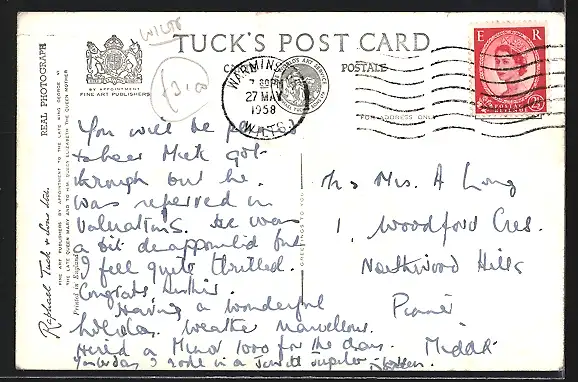 WILTS
TUCK'S POST CARD
£3.00
BY APPOINTMENT
FINE ART PUBLISHERS
REAL PHOTOGRAPH
FINE ART PUBLISHERS BY APPOINTMENT TO THE LATE KING GEORGE VI
THE LATE QUEEN MARY AND TO HM QUEEN ELIZABETH THE QUEEN MOTHER
Raphael Tuck & Sons Ltd.
Printed in England
WARMINSTER
27 MAY
1958
WILTS
E R
POSTAGE
FOR ADDRESS ONLY
GREETINGS TO YOU
You will be
to hear Mick got
through but he
was referred in
Valuations. He was
a bit disappointed but
I feel quite thrilled.
Congrats,
Having a wonderful
holiday. Weather marvellous.
Hired a Minor 1000 for the day.
Yesterday I rode in a Jupiter
Mrs. A Long
1, Woodford Cres.
Northwood Hills
Pinner
Middx